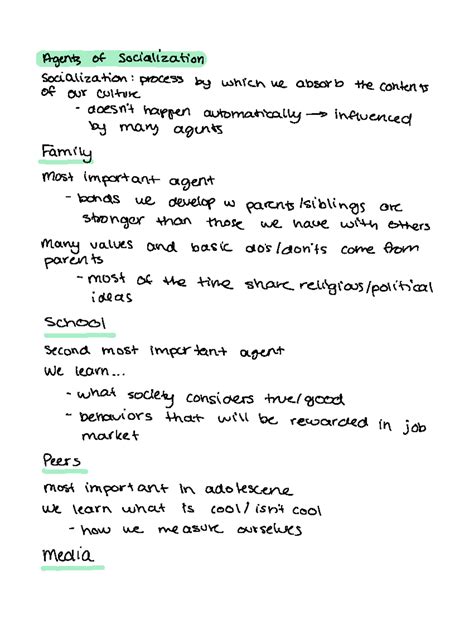 Agents of Socialization
Socialization: process by which we absorb the contents
of our culture
- doesn't happen automatically → influenced
by many agents
Family
most important agent
- bonds we develop w parents/siblings are
stronger than those we have with others
Many values and basic do's/don'ts come from
parents
- most of the time share religious/political
ideas
School
Second most important agent
We learn...
- what society considers true/good
- behaviors that will be rewarded in job
market
Peers
most important in adolescene
we learn what is cool/isn't cool
- how we measure ourselves
Media